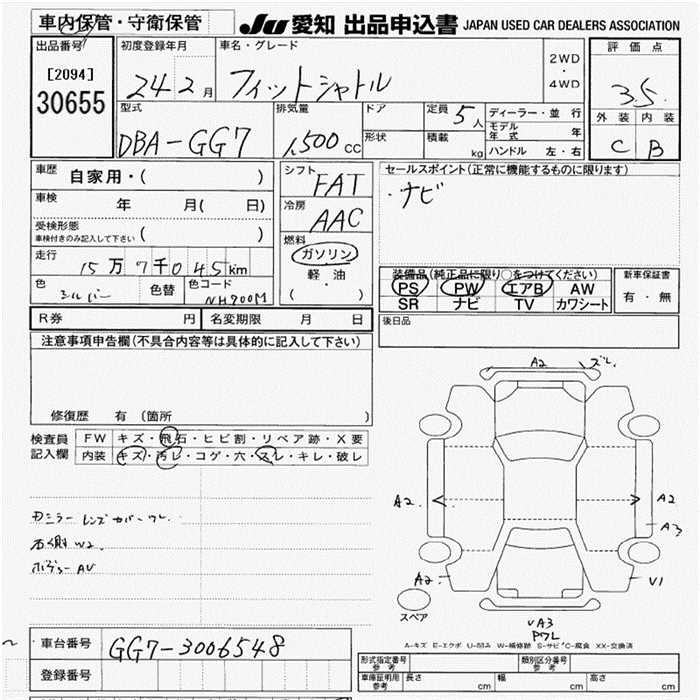 車内保管・守衛保管
JU 愛知 出品申込書 JAPAN USED CAR DEALERS ASSOCIATION
出品番号 初度登録年月 車名・グレード 評価点
[2094]
30655
24 2月 フィットシャトル 2WD・4WD 3.5
型式 排気量 ドア 定員 5人 ディーラー・並行 外装 内装
DBA-GG7 1,500cc 形状 積載 kg モデル年式 年 C B
ハンドル 左・右
車歴 自家用・( )
シフト FAT
セールスポイント(正常に機能するものに限ります)
・ナビ
車検 年 月( 日)
冷房 AAC
受検形態
車検付きのみ記入して下さい ( )
燃料 ガソリン
軽油
( ・ )
走行 15万7千045km
色 シルバー 色替 色コード NH700M
装備品(純正品に限り○をつけてください) 新車保証書
PS PW エアB AW 有・無
SR ナビ TV カワシート
R券 円 名変期限 月 日
後日品
注意事項申告欄(不具合内容等は具体的に記入して下さい)
修復歴 有 (箇所 )
検査員 FW キズ・飛石・ヒビ割・リペア跡・X要
記入欄 内装 キズ・汚レ・コゲ・穴・スレ・キレ・破レ
A2 ズレ
A2. A2
A3
A2 V1
スペア
VA3
Pワレ
A-キズ E-エクボ U-凹み W-補修跡 S-サビ C-腐食 XX-交換済
右側 W2
ボデー AV
車台番号 GG7-3006548
登録番号
形式指定番号 参考 類別区分番号 参考
車庫証明用 参考 長さ cm 幅 cm 高さ cm